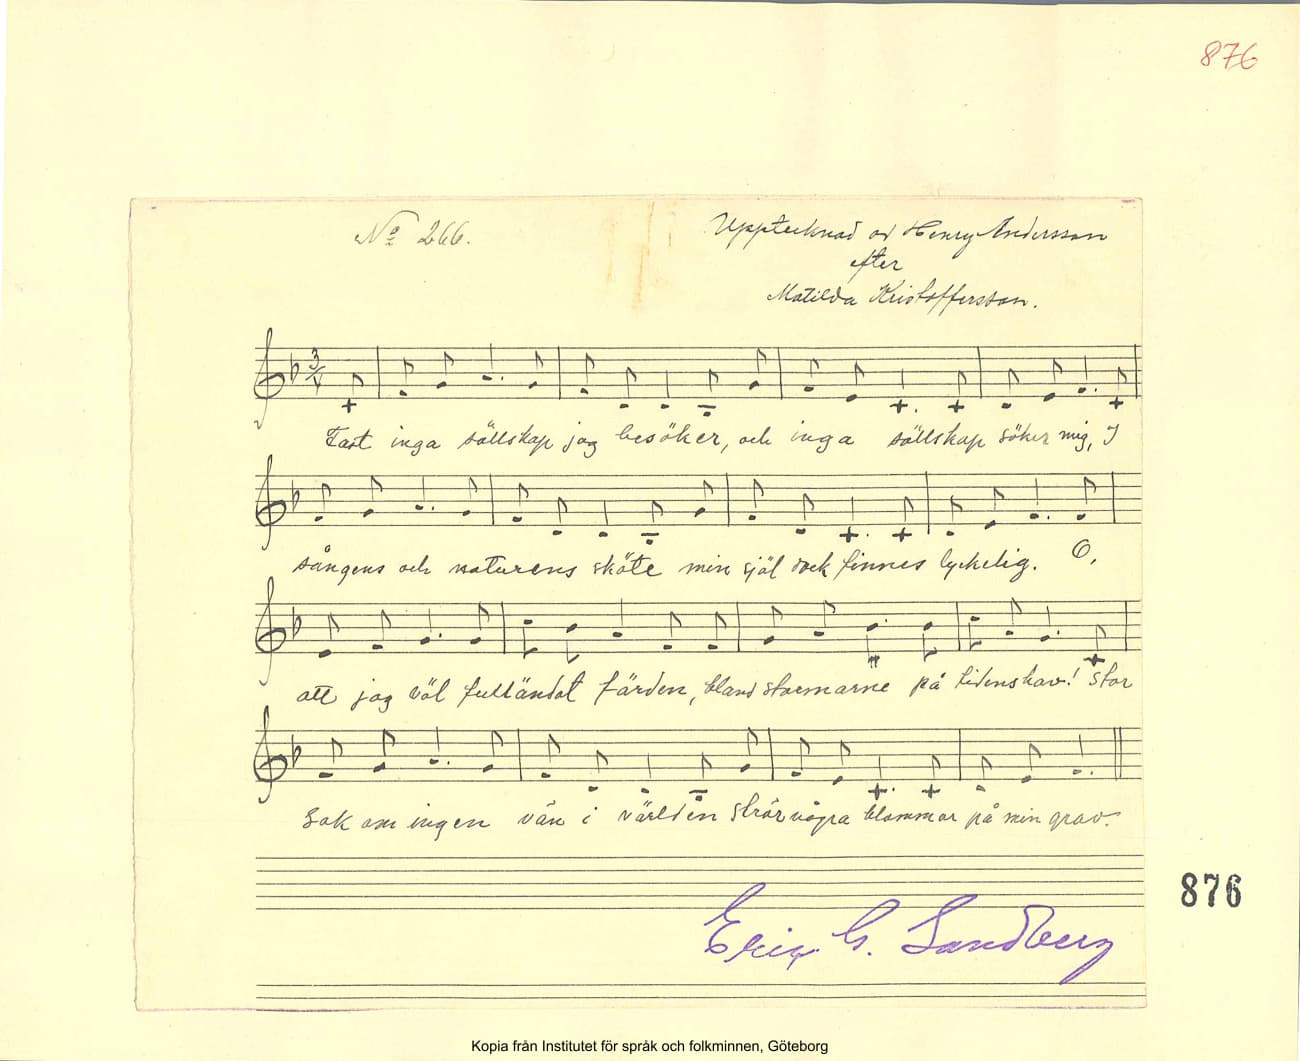 876
No 266.
Upptecknad av Henry Andersson
efter
Matilda Kristoffersson.
3/4
Fast inga sällskap jag besöker, och inga sällskap söker mig, I
sångens och naturens sköte min själ dock finnes lyckelig. O,
att jag väl fulländat färden, bland stormarne på tidens hav! Stor
sak om ingen vän i världen strör några blommor på min grav.
Eric G. Sandberg
876
Kopia från Institutet för språk och folkminnen, Göteborg